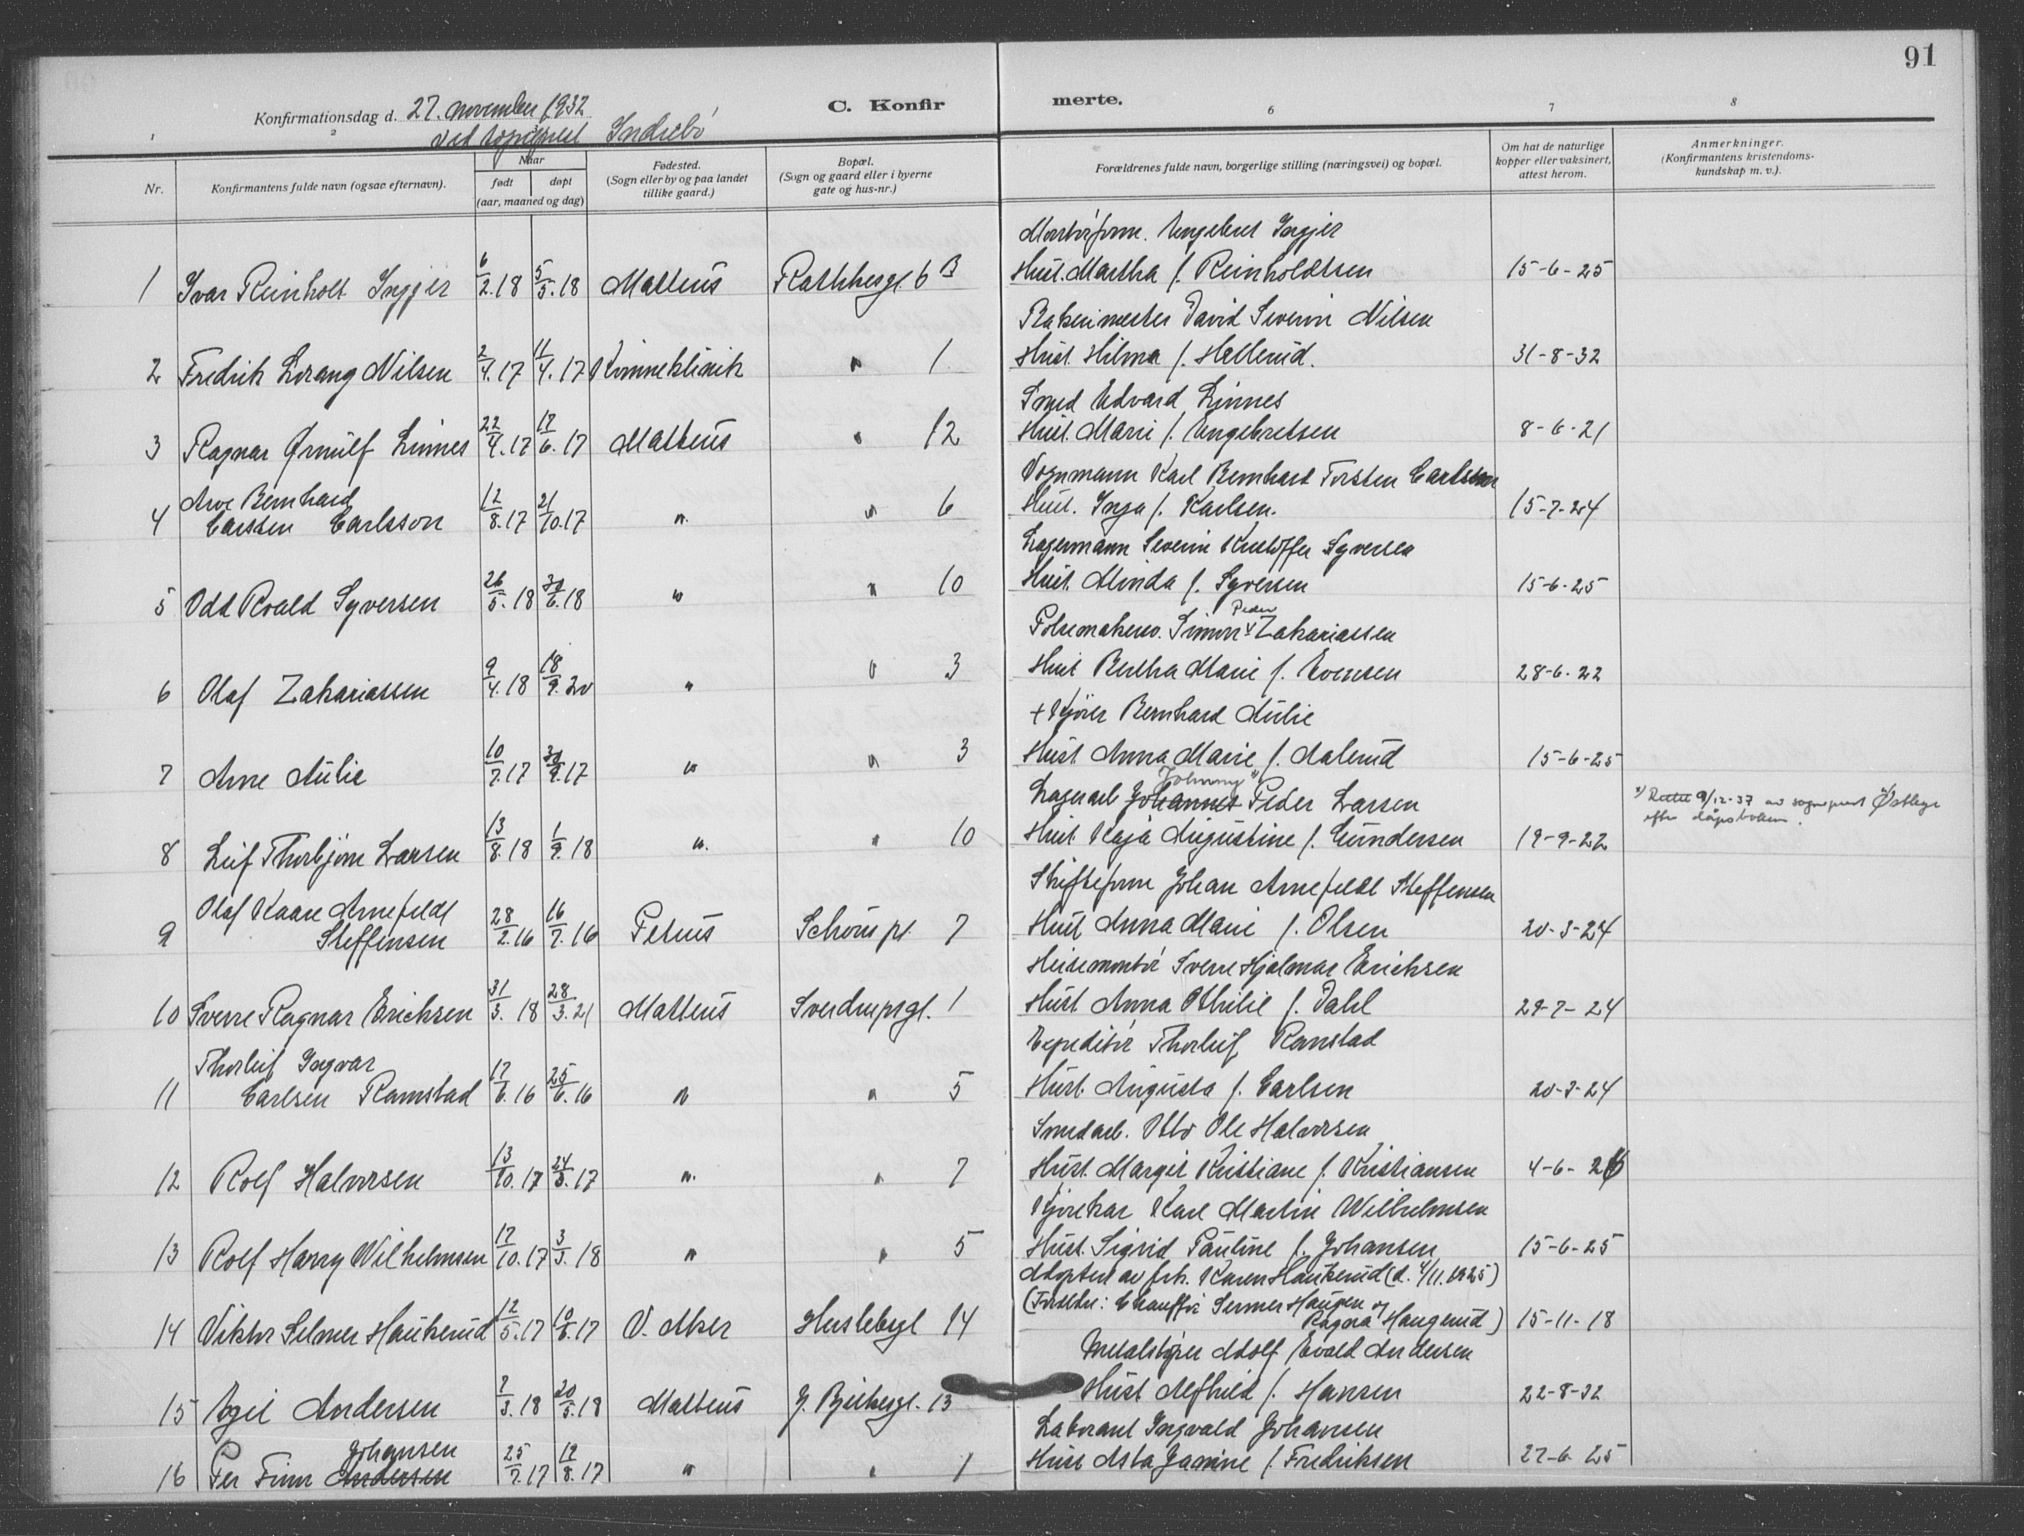 91
Konfirmationsdag d. 27. november 1932
C. Konfirmerte.
ved sogneprest Indrebø
1 2 3 6 7 8
Nr.
Konfirmantens fulde navn (ogsaa efternavn).
Naar
født døpt
(aar, maaned og dag)
Fødested.
(Sogn eller by og paa landet
tillike gaard.)
Bopæl.
(Sogn og gaard eller i byerne
gate og hus-nr.)
Forældrenes fulde navn, borgerlige stilling (næringsvei) og bopæl.
Om hat de naturlige
kopper eller vaksinert,
attest herom.
Anmerkninger.
(Konfirmantens kristendoms-
kundskap m. v.).
Montørform. Engebret Ingjer
1 Ivar Reinholt Ingjer 6/2.18 5/5.18 Matteus Rathkesgt. 6 B Hust. Martha f. Reinholdtsen 15-6-25
Bakerimester David Severin Nilsen
2 Fredrik Lorang Nilsen 2/4.17 11/4.17 Kvinneklinik " 1 Hust. Hilma f. Hellerud. 31-8-32
Smed Edvard Linnes
3 Ragnar Ørnulf Linnes 22/4.17 17/6.17 Matteus " 12 Hust. Marie f. Engebretsen 8-6-21
Vognmann Karl Bernhard Torsten Carlsson
4 Arve Bernhard
Carsten Carlsson 12/8.17 21/10.17 " " 6 Hust. Inga f. Karlsen. 15-7-24
Lagermann Severin Kristoffer Syversen
5 Odd Roald Syversen 26/5.18 30/6.18 " " 10 Hust. Minda f. Syversen 15-6-25
Peder
Pølsemakersv. Simon Zakariassen
6 Olaf Zakariassen 9/4.18 18/9.20 " " 3 Hust Bertha Marie f. Evensen 28-6-22
+ Kjører Bernhard Aulie
7 Arne Aulie 10/7.17 30/9.17 " " 3 Hust. Anna Marie f. Aalerud 15-6-25
Johnny
Lagerarb. Johannes Peder Larsen
8 Leif Thorbjørn Larsen 13/8.18 1/9.18 " " 10 Hust Kaja Augustine f. Gundersen 19-9-22
Rettet 9/12-37 av sogneprest Østlyge
efter dåpsboken.
Skifteform Johan Arnefeldt Steffensen
9 Olaf Kaare Arnefeldt
Steffensen 28/2.16 16/7.16 Petrus Schous pl. 7 Hust Anna Marie f. Olsen 20-3-24
Heisemontør Sverre Hjalmar Erichsen
10 Sverre Ragnar Erichsen 31/3.18 28/3.21 Matteus Sverdrupsgt. 1 Hust. Anna Othilie f. Dahl 29-7-24
Expeditør Thorleif Ramstad
11 Thorleif Ingvar
Carlsen Ramstad 17/6.16 25/6.16 " " 5 Hust. Augusta f. Carlsen 20-3-24
Smedarb. Otto Ole Halvorsen
12 Rolf Halvorsen 13/10.17 24/3.17 " " 7 Hust. Margit Kristiane f. Kristiansen 4-6-26
Kjørekar Karl Martin Wilhelmsen
13 Rolf Harry Wilhelmsen 17/10.17 3/3.18 " " 5 Hust. Sigrid Pauline f. Johansen 15-6-25
Adoptert av frk. Karen Haukerud (d. 4/11.1925)
14 Viktor Selmer Haukerud 12/5.17 10/6.17 V. Aker Huslebygt 14 (Foreldre: Chauffør Sermer Haugen og
Ragna Haugerud) 15-11-18
Metalstøper Adolf Evald Andersen
15 Egil Andersen 7/3.18 20/5.18 Matteus J. Bjelkesgt. 13 Hust Alfhild f. Hansen 22-8-32
Laborant Ingvald Johansen
16 Per Finn Andersen Johansen 25/7.17 19/8.17 " " 1 Hust Asta Jamine f. Fredriksen 27-6-25